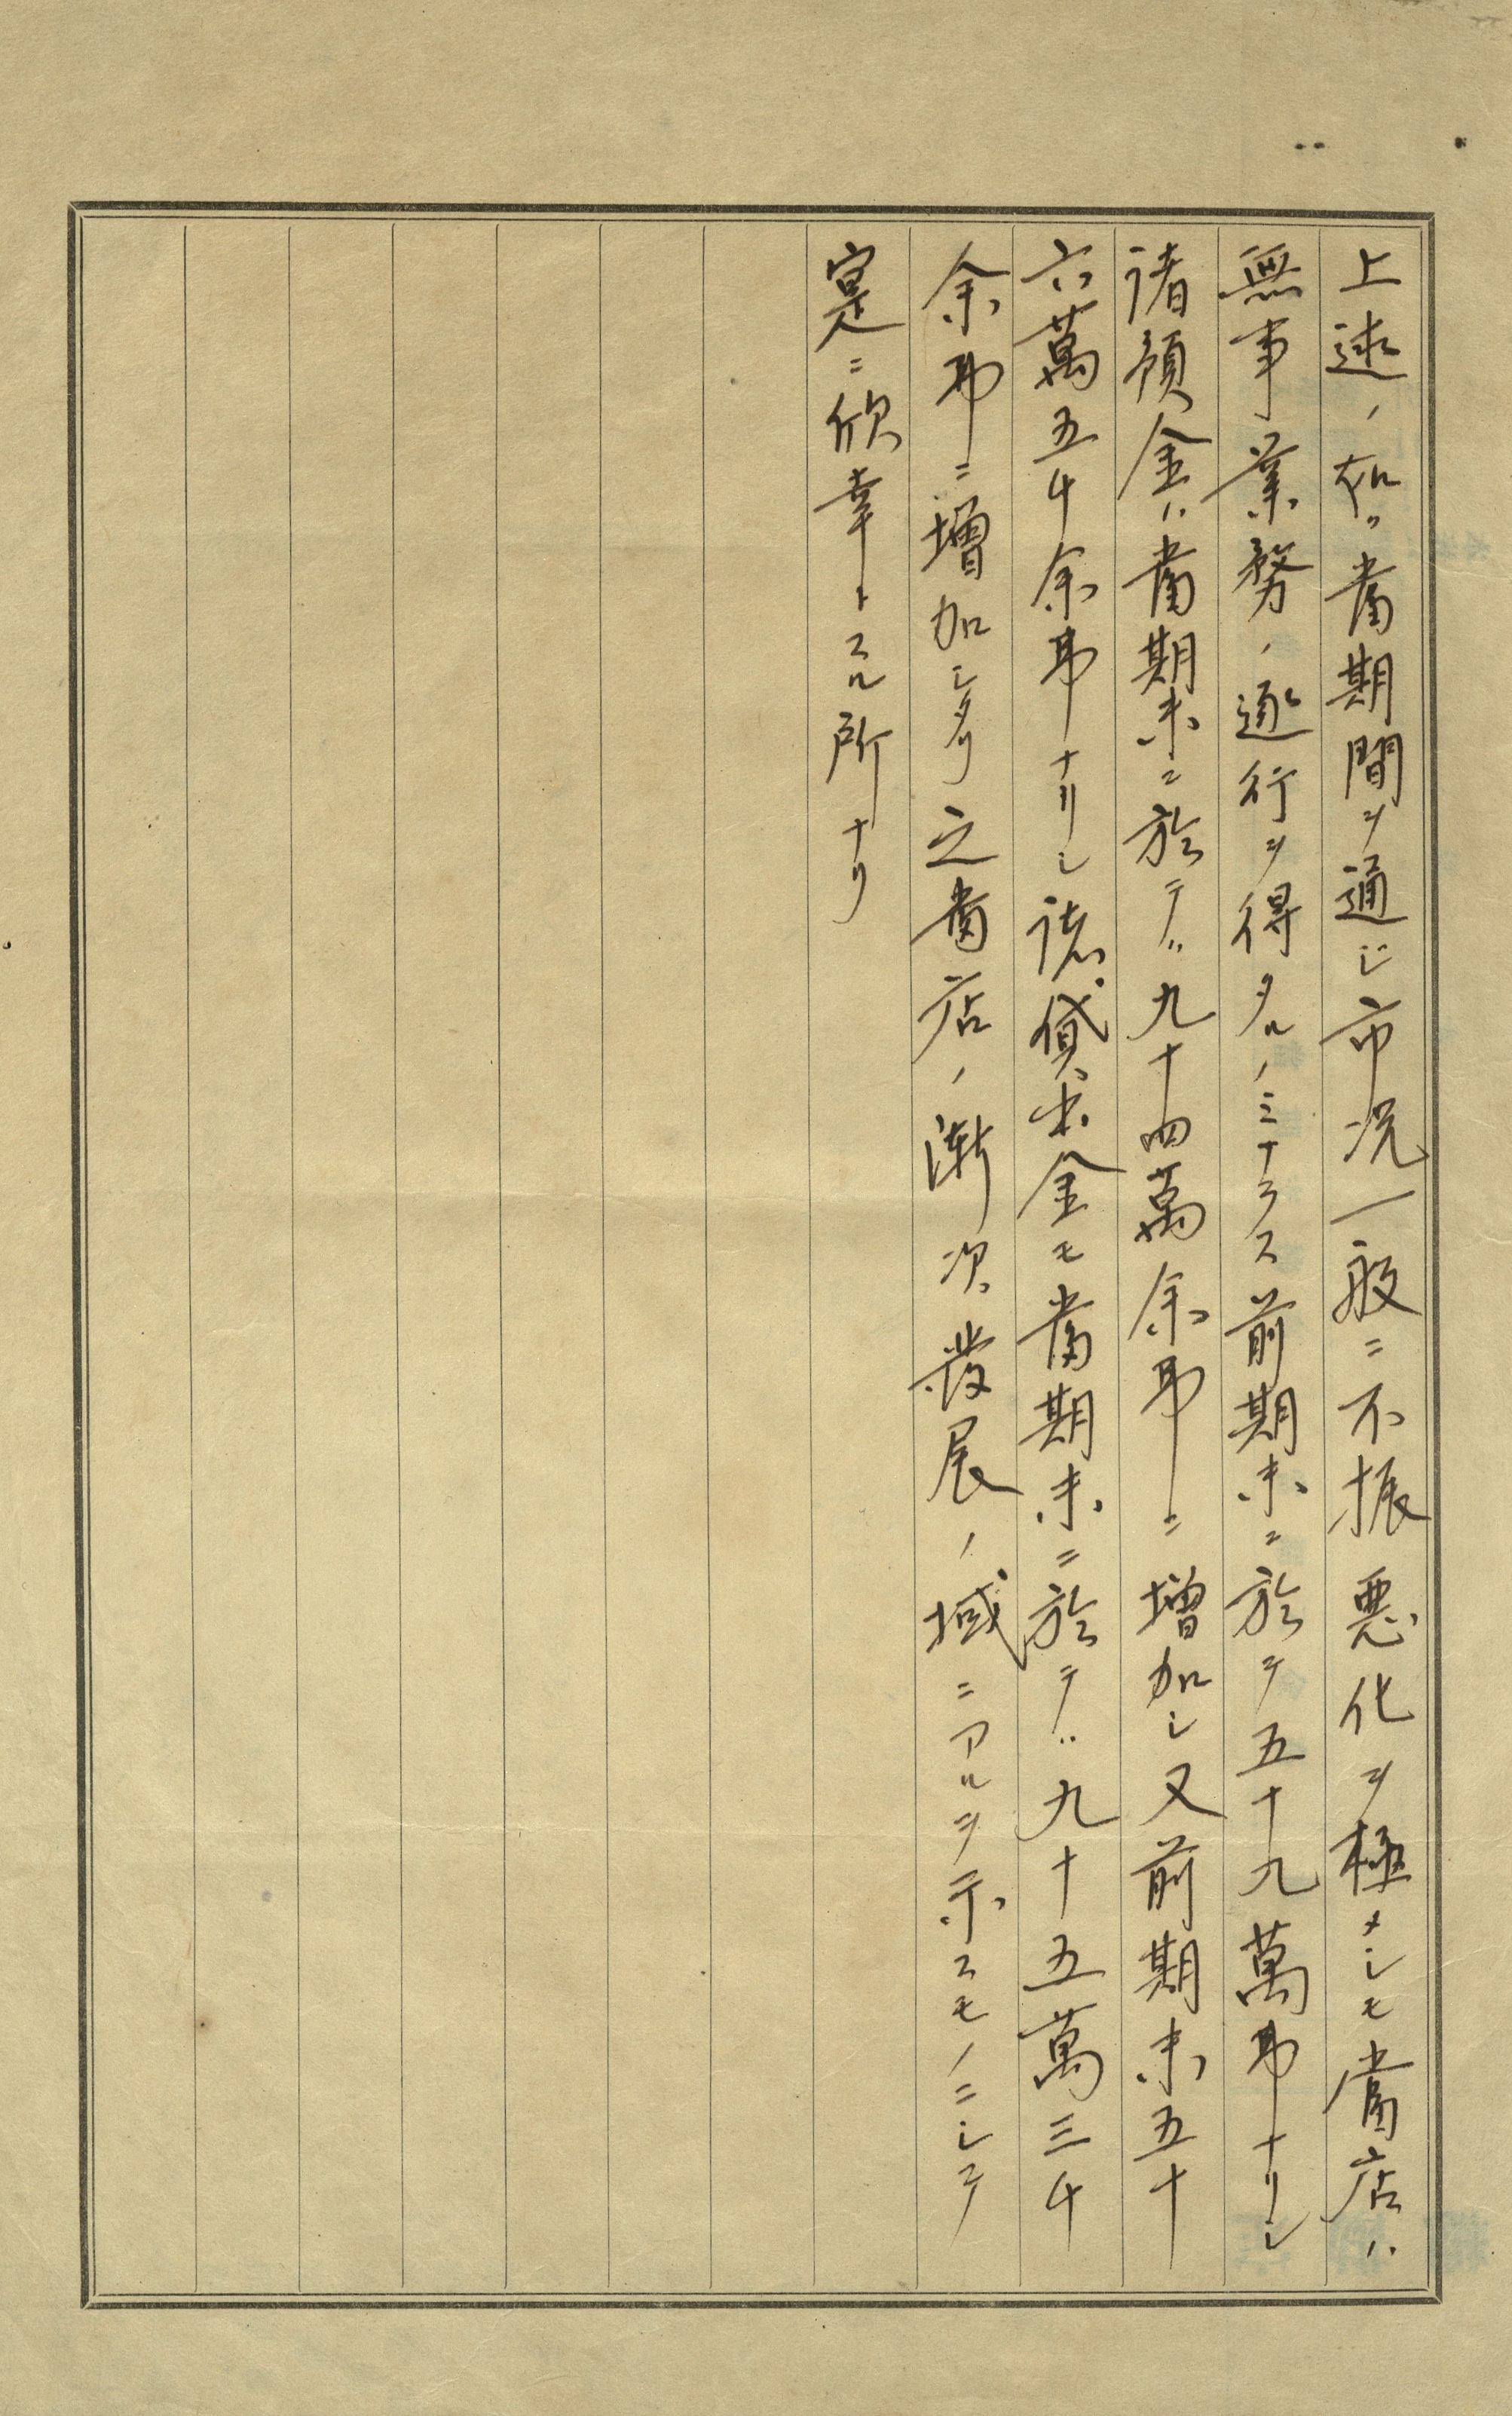 上述ノ如ク當期間ヲ通ジ市况一般ニ不振悪化ヲ極メシモ當店ハ
無事業務ノ遂行ヲ得タルノミナラス前期末ニ於テ五十九萬弗ナリシ
諸預金ハ當期末ニ於テハ九十四萬余弗ニ増加シ又前期末五十
六萬五千余弗ナリシ諸貸出金モ當期末ニ於テハ九十五萬三千
余弗ニ増加シタリ之當店ノ漸次發展ノ域ニアルヲ示スモノニシテ
寔ニ欣幸トスル所ナリ